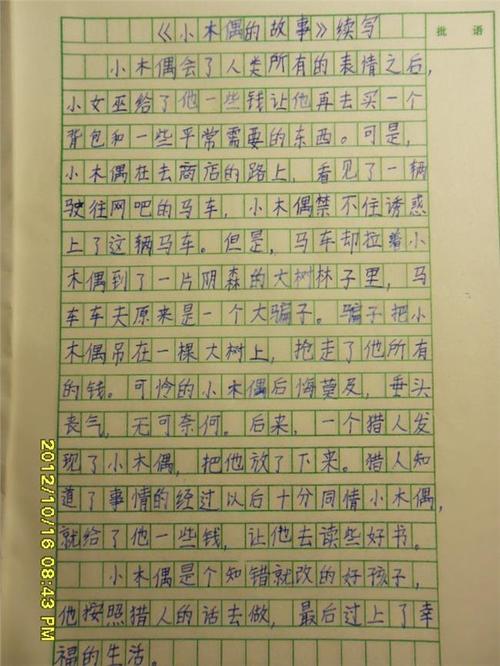 《小木偶的故事》续写
批语
小木偶会了人类所有的表情之后，
小女巫给了他一些钱让他再去买一个
背包和一些平常需要的东西。可是，
小木偶在去商店的路上，看见了一辆
驶往网吧的马车，小木偶禁不住诱惑
上了这辆马车。但是，马车却拉着小
木偶到了一片阴森的大树林子里，马
车车夫原来是一个大骗子。骗子把小
木偶吊在一棵大树上，抢走了他所有
的钱。可怜的小木偶后悔莫及，垂头
丧气，无可奈何。后来，一个猎人发
现了小木偶，把他放了下来。猎人知
道了事情的经过以后十分同情小木偶，
就给了他一些钱，让他去读些好书。
小木偶是个知错就改的好孩子，
他按照猎人的话去做，最后过上了幸
福的生活。
2012/10/16 08:43 PM